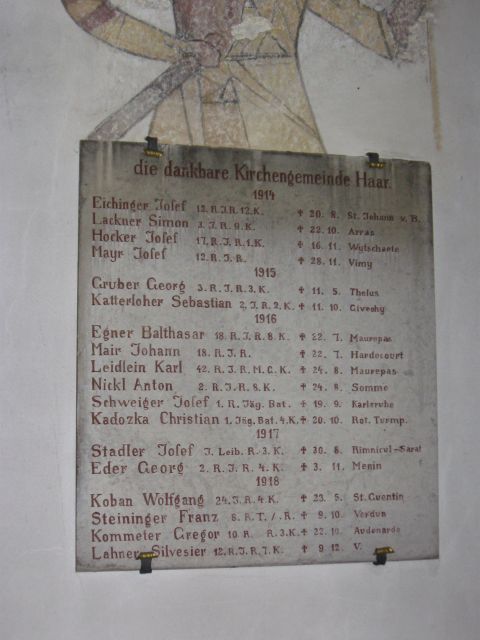 die dankbare Kirchengemeinde Haar.
1914
Eichinger Josef 12. R.J.R. 12. K. ✝ 20. 8. St. Johann v. B.
Lackner Simon 3. J. R. 9. K. ✝ 22. 10. Arras
Hocker Josef 17. R. J. R. 1. K. ✝ 16. 11. Wytschaete
Mayr Josef 12. R. J. R. ✝ 28. 11. Vimy
1915
Gruber Georg 3. R. J. R. 3. K. ✝ 11. 5. Thelus
Katterloher Sebastian 2. J. R. 2. K. ✝ 11. 10. Givechy
1916
Egner Balthasar 18. R. J. R. 8. K. ✝ 22. 7. Maurepas
Mair Johann 18. R. J. R. ✝ 22. 7. Hardecourt
Leidlein Karl 42. R. J. R. M. G. K. ✝ 24. 8. Maurepas
Nickl Anton 2. R. J. R. 8. K. ✝ 24. 8. Somme
Schweiger Josef 1. R. Jäg. Bat. ✝ 19. 9. Karlsruhe
Kadozka Christian 1. Jäg. Bat. 4. K. ✝ 20. 10. Rot. Turmp.
1917
Stadler Josef J. Leib. R. 3. K. ✝ 30. 8. Rimnicul-Sarat
Eder Georg 2. R. J. R. 4. K. ✝ 3. 11. Menin
1918
Koban Wolfgang 24. J. R. 4. K. ✝ 23. 5. St. Quentin
Steininger Franz ✝ 9. 10. Verdun
Kommeter Gregor 10. R. R. 3. K. ✝ 22. 10. Audenarde
Lahner Silvesier 12. R. J. R. 7. K. ✝ 9 12. V.